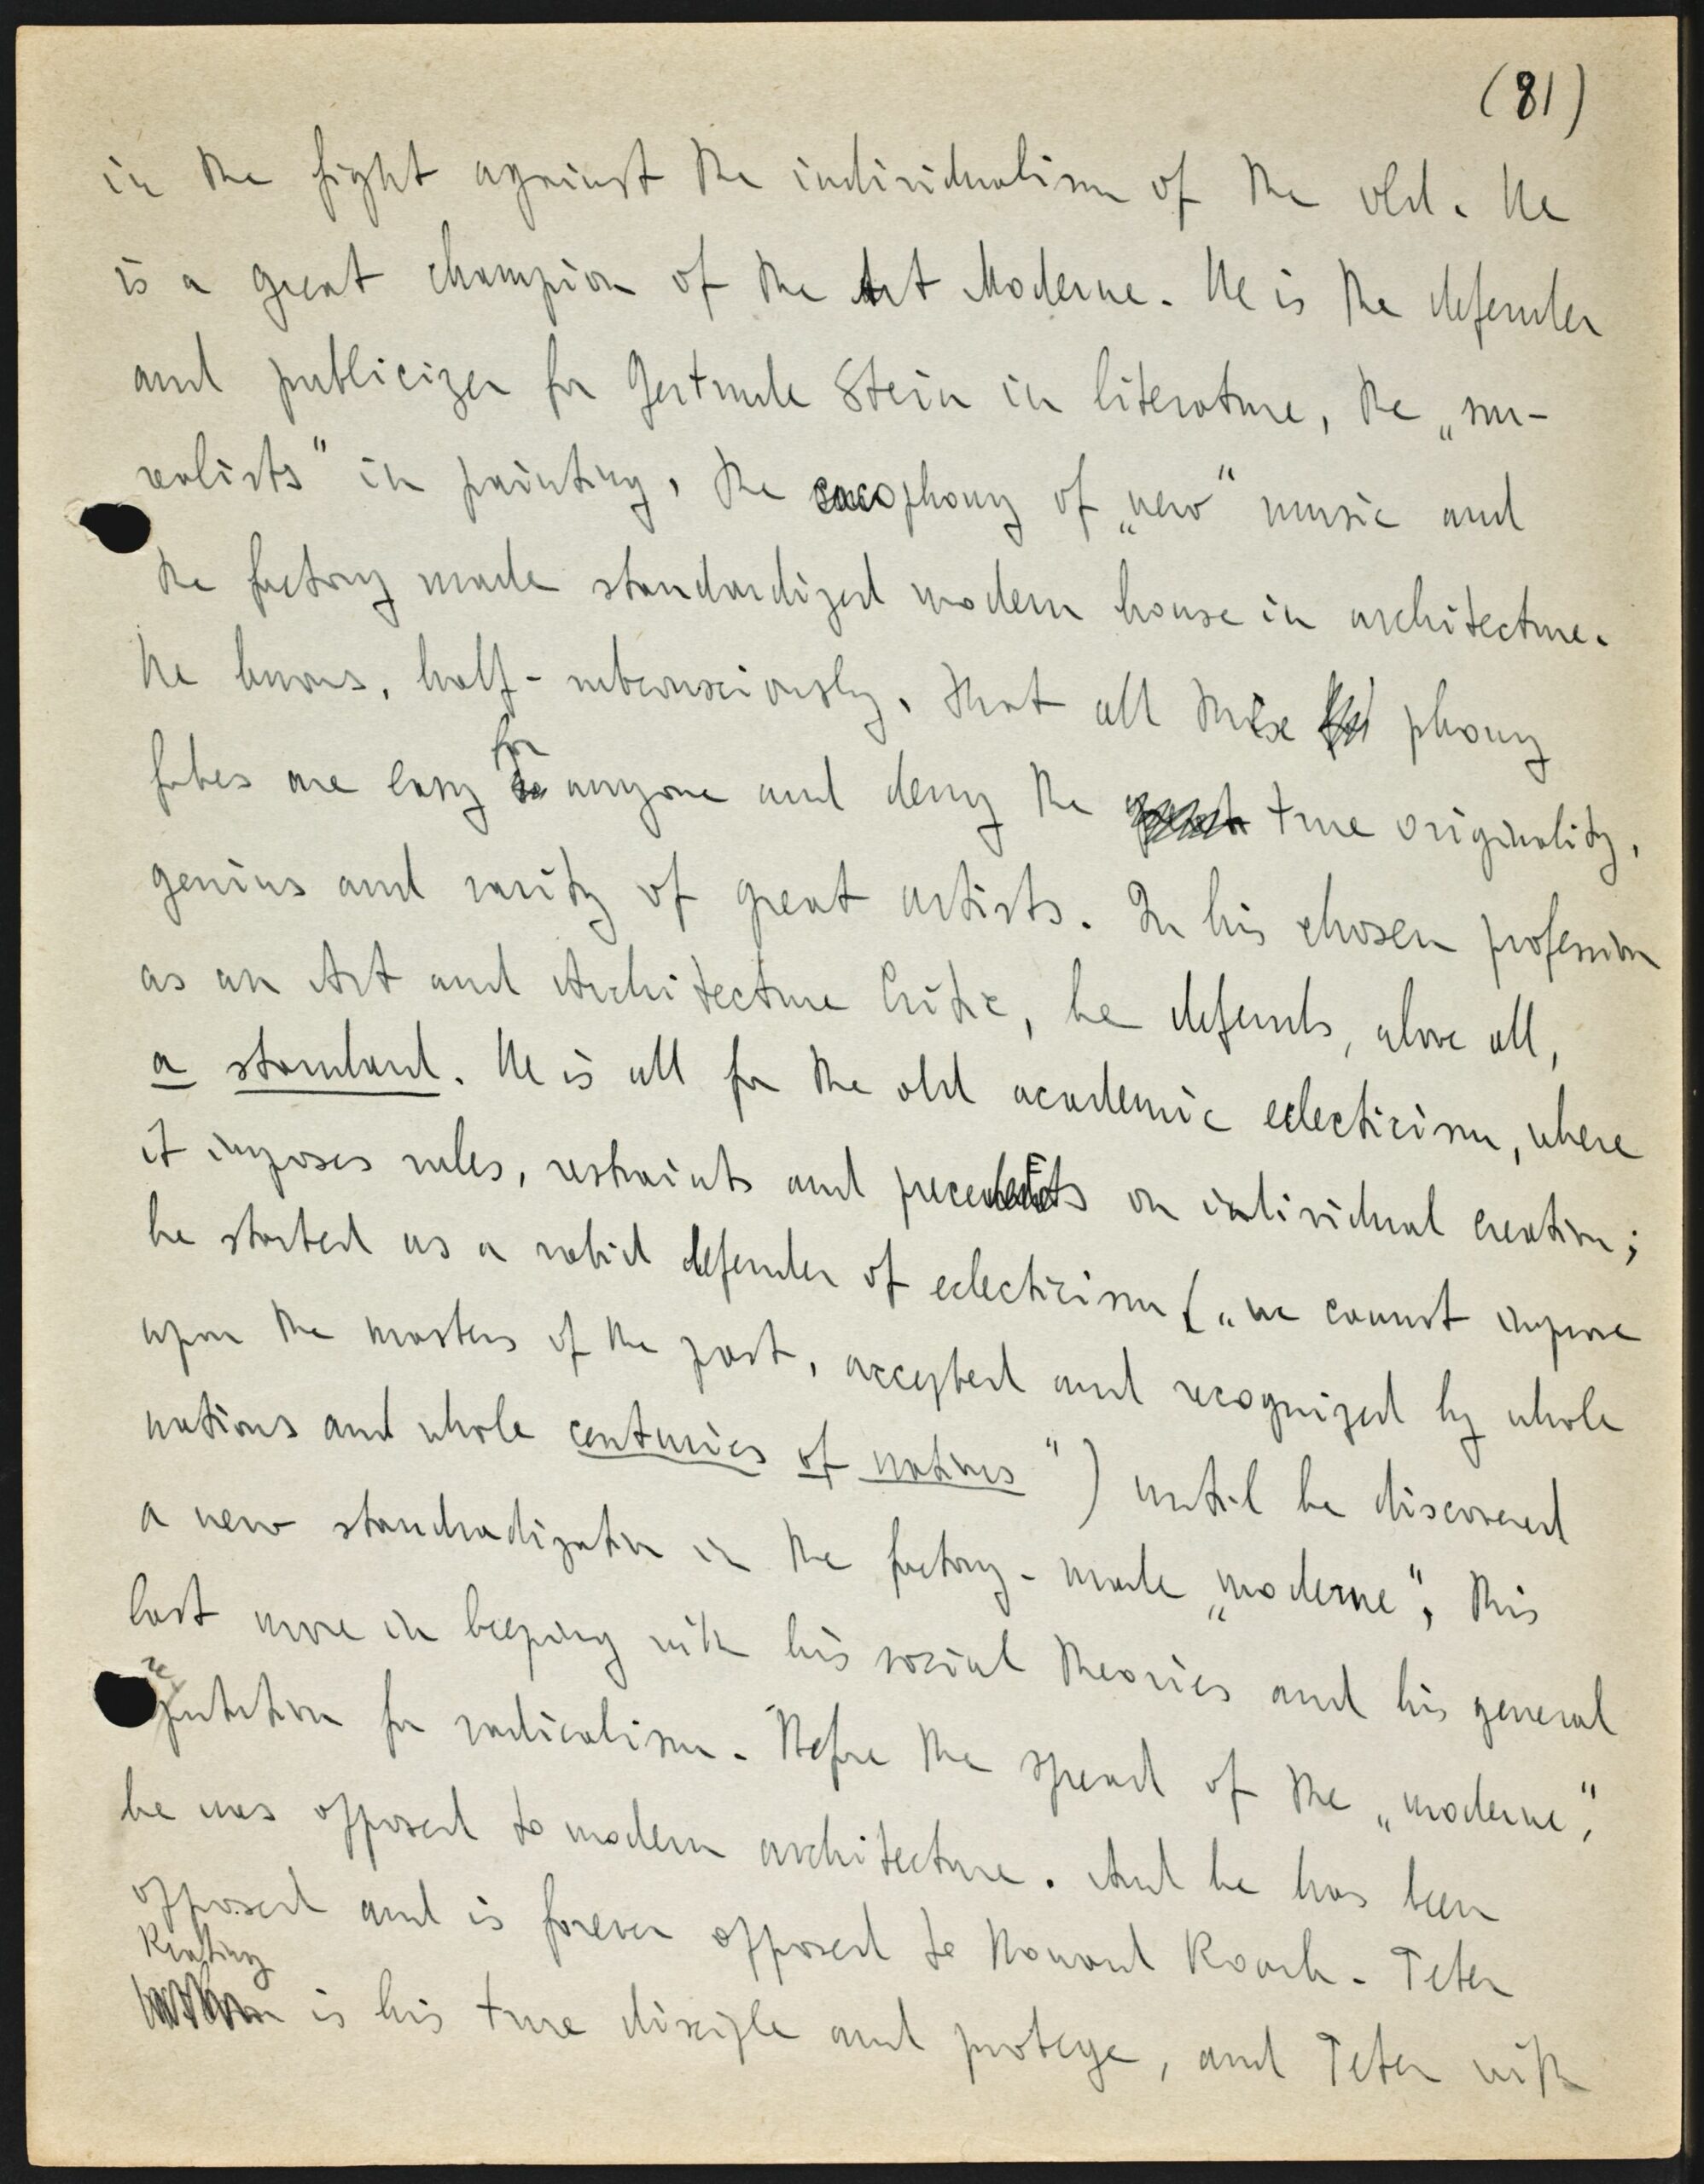 (81)
in the fight against the individualism of the old. He
is a great champion of the Art Moderne. He is the defender
and publicizer for Gertrude Stein in literature, the „sur-
realists" in painting, the cacophony of „new" music and
the factory made standardized modern house in architecture.
He knows, half-subconsciously, that all these phony
fakes are easy for anyone and deny the true originality,
genius and rarity of great artists. In his chosen profession
as an Art and Architecture Critic, he defends, above all,
a standard. He is all for the old academic eclecticism, where
it imposes rules, restraints and precedents on individual creation;
he started as a rabid defender of eclecticism („we cannot improve
upon the masters of the past, accepted and recognized by whole
nations and whole centuries of nations") until he discovered
a new standradization in the factory-made „moderne", this
last more in keeping with his social theories and his general
reputation for radicalism. Before the spread of the „moderne",
he was opposed to modern architecture. And he has been
opposed and is forever opposed to Howard Roark. Peter
Keating is his true disciple and protege, and Peter with